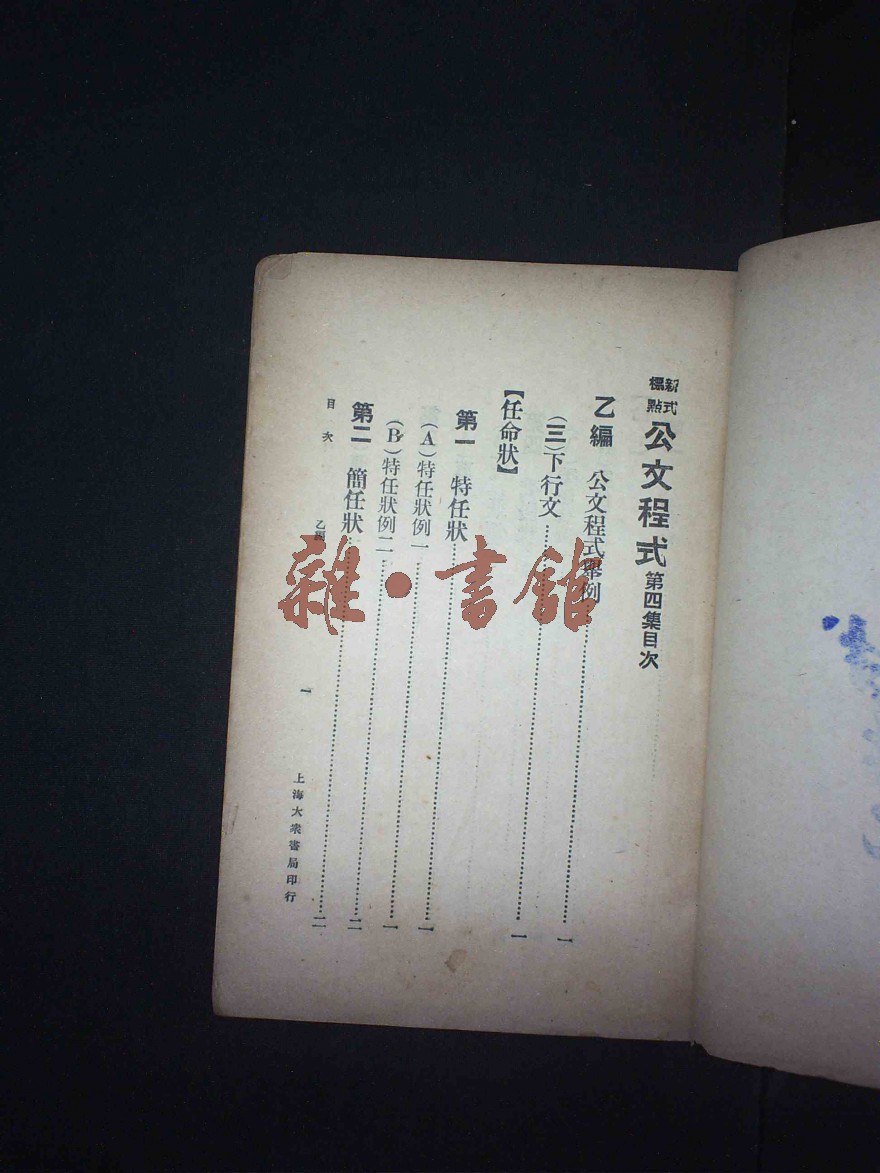 新式標點 公文程式 第四集目次
乙編 公文程式舉例……一
(三)下行文……一
【任命狀】
第一 特任狀……一
(A)特任狀例一……一
(B)特任狀例二……二
第二 簡任狀……二
目次 乙編 一 上海大衆書局印行
雜·書館